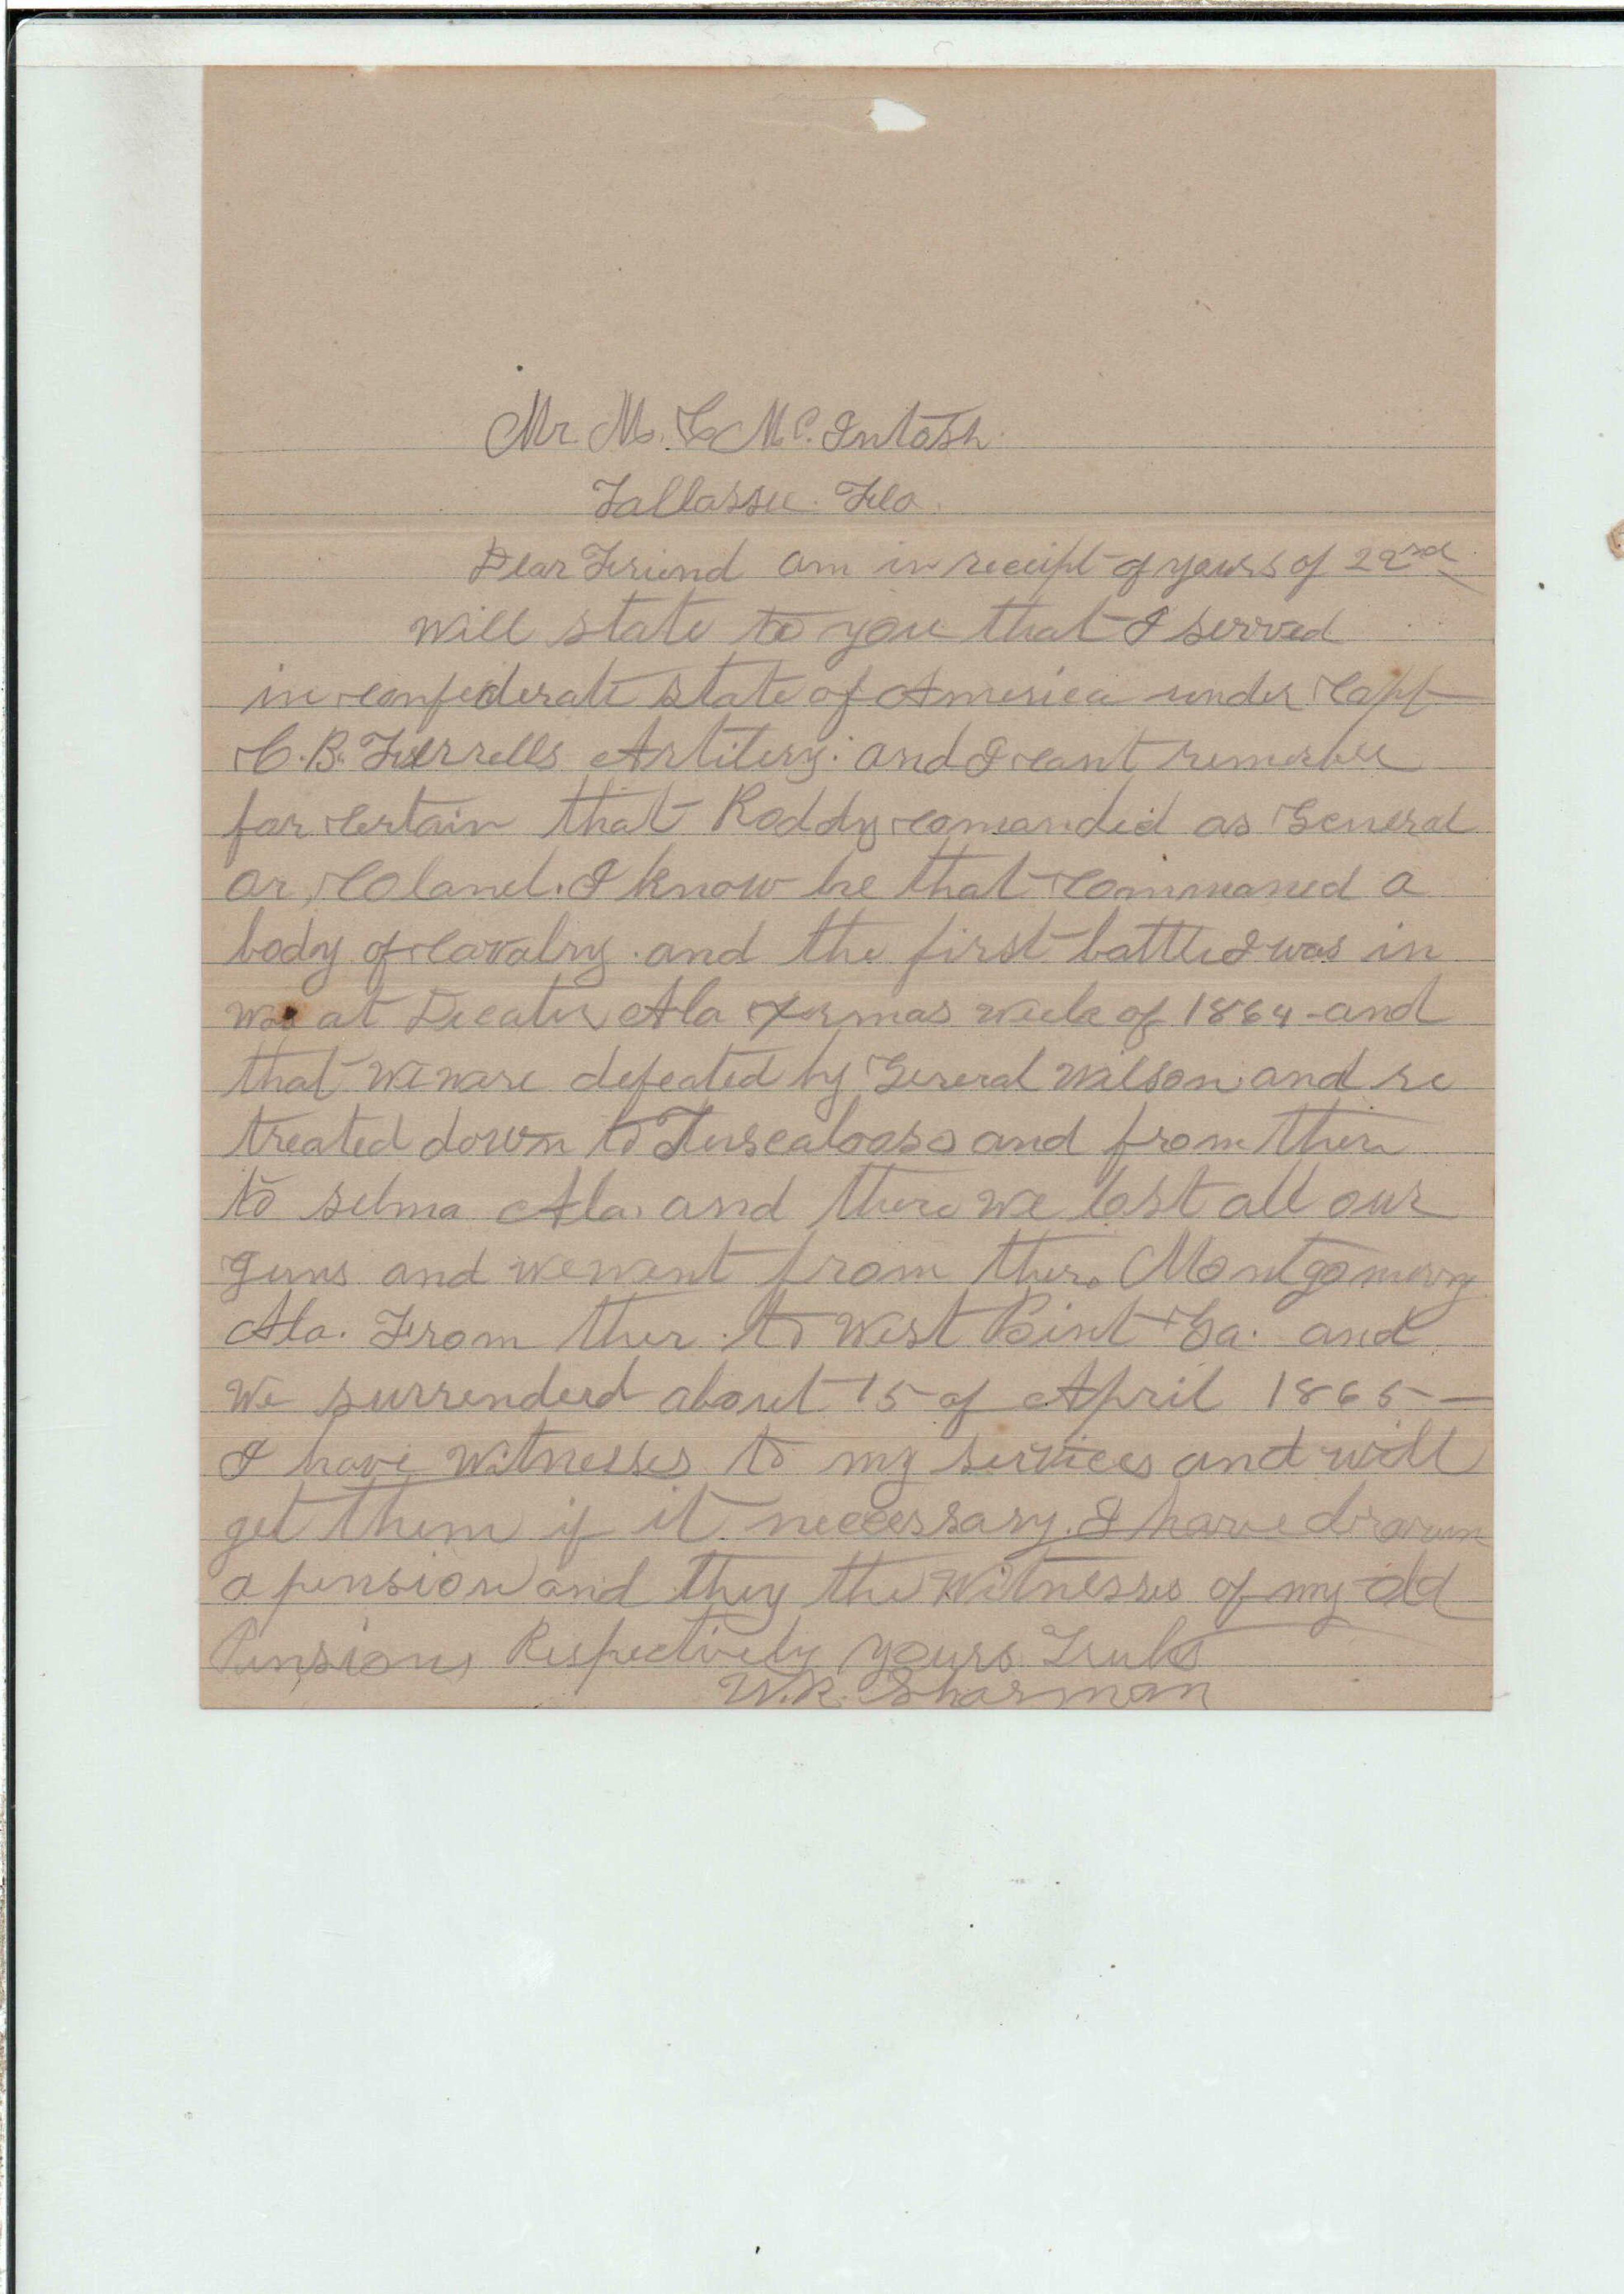 Mr. M. C Mc. Intosh
Tallassee. Fla.
Dear Friend am in receipt of yours of 22nd
will state to you that I serrved
in confederate state of America under Capt
C. B. Ferrells Artilery. and I cant remember
for certain that Roddy comanded as General
or Colanel. I know he that commaned a
body of Cavalry. and the first battle I was in
was at Decatur Ala Xmas week of 1864 and
that we ware defeated by General Wilson and re
treated down to Tuscaloosa and from ther
to selma Ala. and there we lost all our
guns and we went from ther. Montgomery
Ala. From ther to West Point Ga. and
We surrenderd about 15 of April 1865 —
I have witnesses to my services and will
get them if it neccessary. I have drawn
a pension and they the witnesses of my old
Pension, Respectively yours Truly
W. R. Sharman